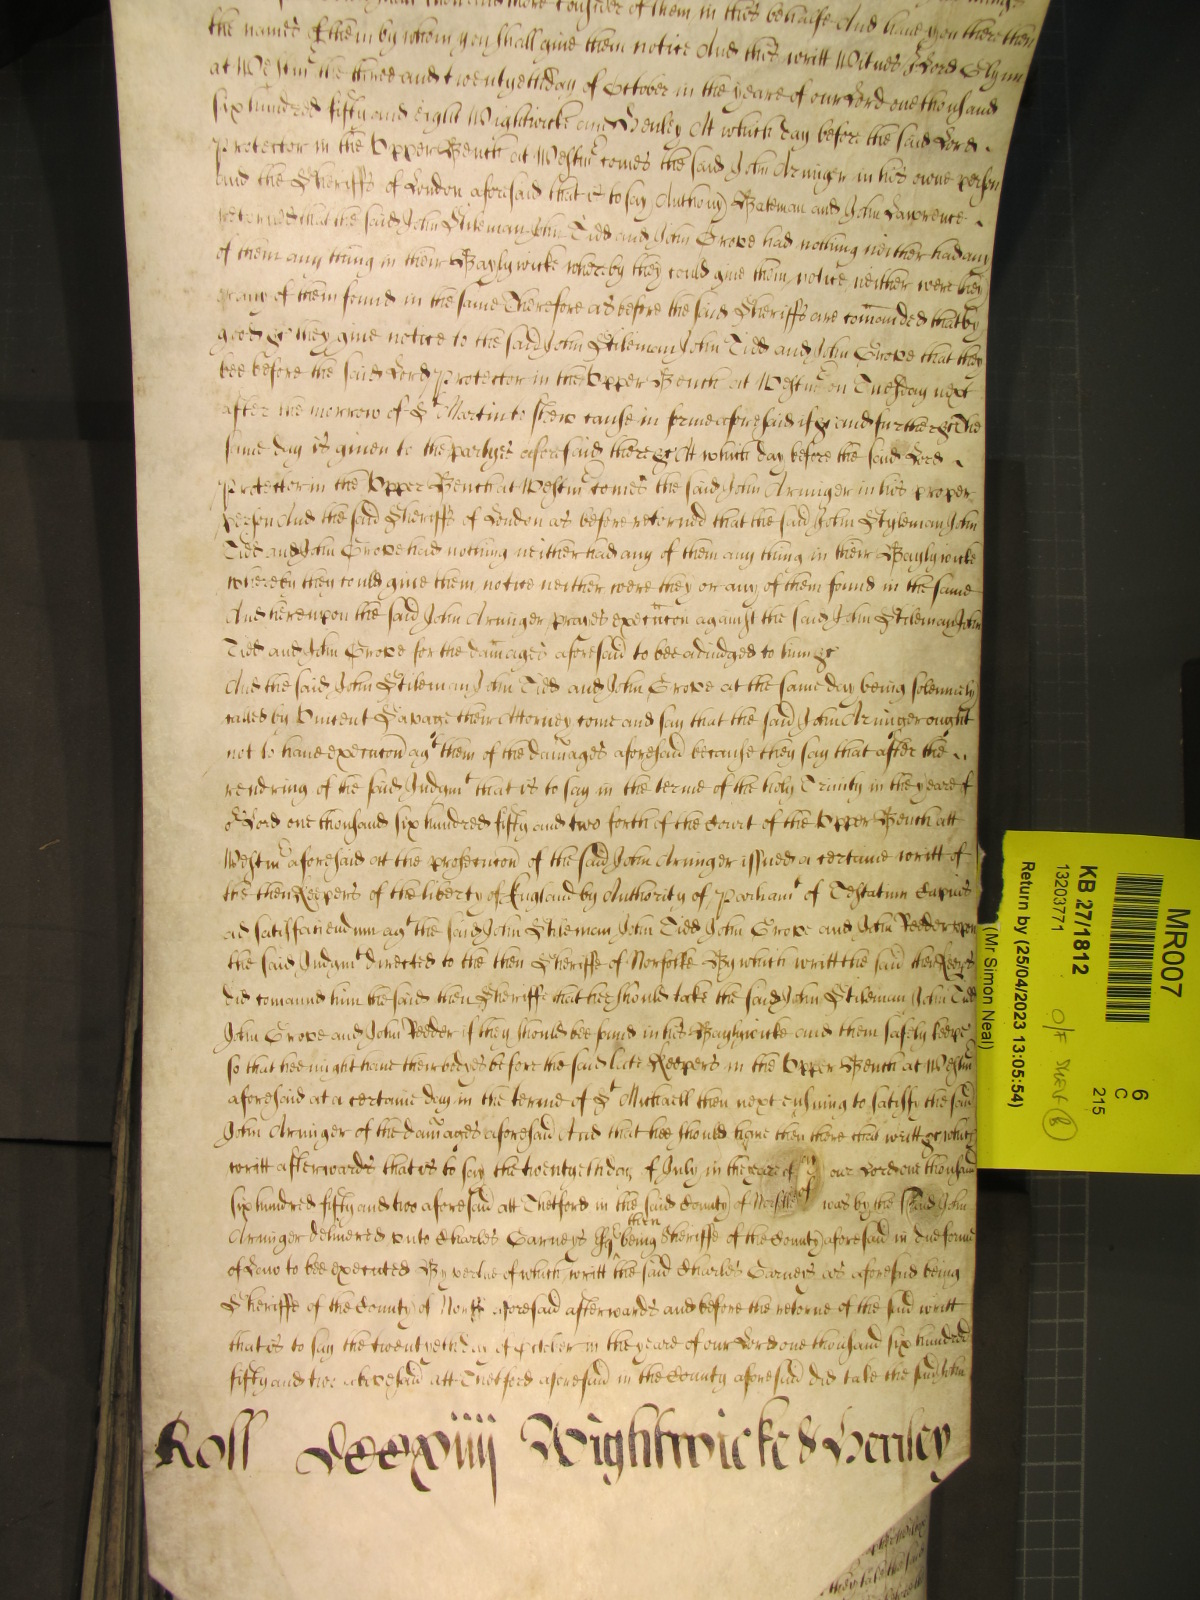 the names of them by whom you shall give them notice And this writt Witnes J Lord Glynn
at Westmr the three and twentyeth day of October in the yeare of our Lord one thousand
six hundred fifty and eight Wightwicke and Henley At which day before the said Lord
Protector in the Upper Bench at Westmr comes the said John Arminger in his owne person
and the Sheriffs of London aforesaid that is to say Anthony Bateman and John Lawrence
retorned that the said John Stileman John Tidd and John Grove had nothing neither had any
of them any thing in their Baylywicke whereby they could give them notice neither were they
or any of them found in the same Therefore as before the said Sheriffs are comanded that by
good &c they give notice to the said John Stileman John Tidd and John Grove that they
bee before the said Lord Protector in the Upper Bench at Westmr on Tuesday next
after the morrow of St Martin to shew cause in forme aforesaid if &c and further &c the
same day is given to the partyes aforesaid there &c At which day before the said Lord
Protector in the Upper Bench at Westmr comes the said John Arminger in his proper
person And the said Sheriffs of London as before retorned that the said John Styleman John
Tidd and John Grove had nothing neither had any of them any thing in their Baylywicke
whereby they could give them notice neither were they or any of them found in the same
And thereupon the said John Arminger prayes execucon against the said John Stileman John
Tidd and John Grove for the damages aforesaid to bee adiudged to him &c
And the said John Stileman John Tidd and John Grove at the same day being solemnly
called by Vincent Savage their Attorney come and say that the said John Arminger ought
not to have execucon agt them of the damages aforesaid because they say that after the
rendring of the said Judgmt that is to say in the terme of the holy Trinity in the yeare of
or Lord one thousand six hundred fifty and two forth of the Court of the Upper Bench att
Westmr aforesaid att the prosecucon of the said John Arminger issued a certaine writt of
the then Keepers of the liberty of England by Authority of Parliamt of Testatum Capias
ad satisfaciendum agt the said John Stileman John Tidd John Grove and John Kedder upon
the said Judgmt directed to the then Sheriffe of Norfolke By which writt the said then Keeprs
did comannd him the said then Sheriffe that hee should take the said John Stileman John Tidd
John Grove and John Kedder if they should bee found in his Baylywicke and them safely keepe
so that hee might have their bodyes before the said late Keepers in the Upper Bench at Westmr
aforesaid at a certaine day in the terme of St Michaell then next ensuing to satisfy the said
John Arminger of the damages aforesaid And that hee should have then there that writt &c which
writt afterwards that is to say the twentyeth day of July in the yeare of our Lord one thousand
six hundred fifty and two aforesaid att Thetford in the said County of Norffolke was by the said John
Arminger delivered unto Charles Garneys Esqr then being Sheriffe of the County aforesaid in due forme
of Law to bee executed By vertue of which writt the said Charles Garneys as aforesaid being
Sheriffe of the County of Norff aforesaid afterwards and before the retorne of the said writt
that is to say the twentyeth day of October in the yeare of our Lord one thousand six hundred
fifty and two abovesaid att Thetford aforesaid in the County aforesaid did take the said John
Roll Wightwicke & Henley
MR007
6
C
215
KB 27/1812
13203771
Return by (25/04/2023 13:05:54)
(Mr Simon Neal)